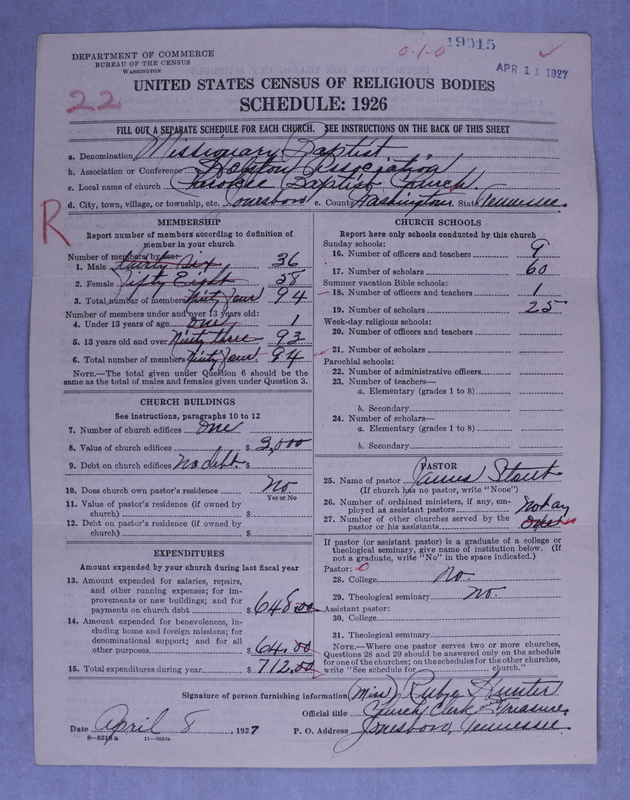 19015
0-1-0
APR 11 1927
DEPARTMENT OF COMMERCE
BUREAU OF THE CENSUS
WASHINGTON
22
UNITED STATES CENSUS OF RELIGIOUS BODIES
SCHEDULE: 1926
FILL OUT A SEPARATE SCHEDULE FOR EACH CHURCH. SEE INSTRUCTIONS ON THE BACK OF THIS SHEET
a. Denomination Missionary Baptist
b. Association or Conference Holston Association
c. Local name of church Cherokee Baptist Church.
d. City, town, village, or township, etc. Jonesboro e. County Washington. State Tennessee
R
MEMBERSHIP
Report number of members according to definition of
member in your church
Number of members by sex:
1. Male Thirty Six 36
2. Female Fifty Eight 58
3. Total number of members Ninty Four 94
Number of members under and over 13 years old:
4. Under 13 years of age one 1
5. 13 years old and over Ninty three 93
6. Total number of members Ninty Four 94
NOTE.—The total given under Question 6 should be the
same as the total of males and females given under Question 3.
CHURCH BUILDINGS
See instructions, paragraphs 10 to 12
7. Number of church edifices one
8. Value of church edifices $ 3,000
9. Debt on church edifices No debt. $
10. Does church own pastor's residence No
Yes or No
11. Value of pastor's residence (if owned by
church) $
12. Debt on pastor's residence (if owned by
church) $
EXPENDITURES
Amount expended by your church during last fiscal year
13. Amount expended for salaries, repairs,
and other running expenses; for im-
provements or new buildings; and for
payments on church debt $ 648.00
14. Amount expended for benevolences, in-
cluding home and foreign missions; for
denominational support; and for all
other purposes $ 64.00
15. Total expenditures during year $ 712.00
CHURCH SCHOOLS
Report here only schools conducted by this church
Sunday schools:
16. Number of officers and teachers 9
17. Number of scholars 60
Summer vacation Bible schools:
18. Number of officers and teachers 1
19. Number of scholars 25
Week-day religious schools:
20. Number of officers and teachers
21. Number of scholars
Parochial schools:
22. Number of administrative officers
23. Number of teachers—
a. Elementary (grades 1 to 8)
b. Secondary
24. Number of scholars—
a. Elementary (grades 1 to 8)
b. Secondary
PASTOR
25. Name of pastor James Stout
(If church has no pastor, write "None")
26. Number of ordained ministers, if any, em-
ployed as assistant pastors Not any
27. Number of other churches served by the
pastor or his assistants
If pastor (or assistant pastor) is a graduate of a college or
theological seminary, give name of institution below. (If
not a graduate, write "No" in the space indicated.)
Pastor: 0
28. College No.
29. Theological seminary No.
Assistant pastor:
30. College
31. Theological seminary
NOTE.—Where one pastor serves two or more churches,
Questions 28 and 29 should be answered only on the schedule
for one of the churches; on the schedules for the other churches,
write "See schedule for church."
Signature of person furnishing information (Miss) Rubye Hunter
Official title Church Clerk and Treasurer
Date April 8, 1927 P. O. Address Jonesboro, Tennessee.
8—5518a